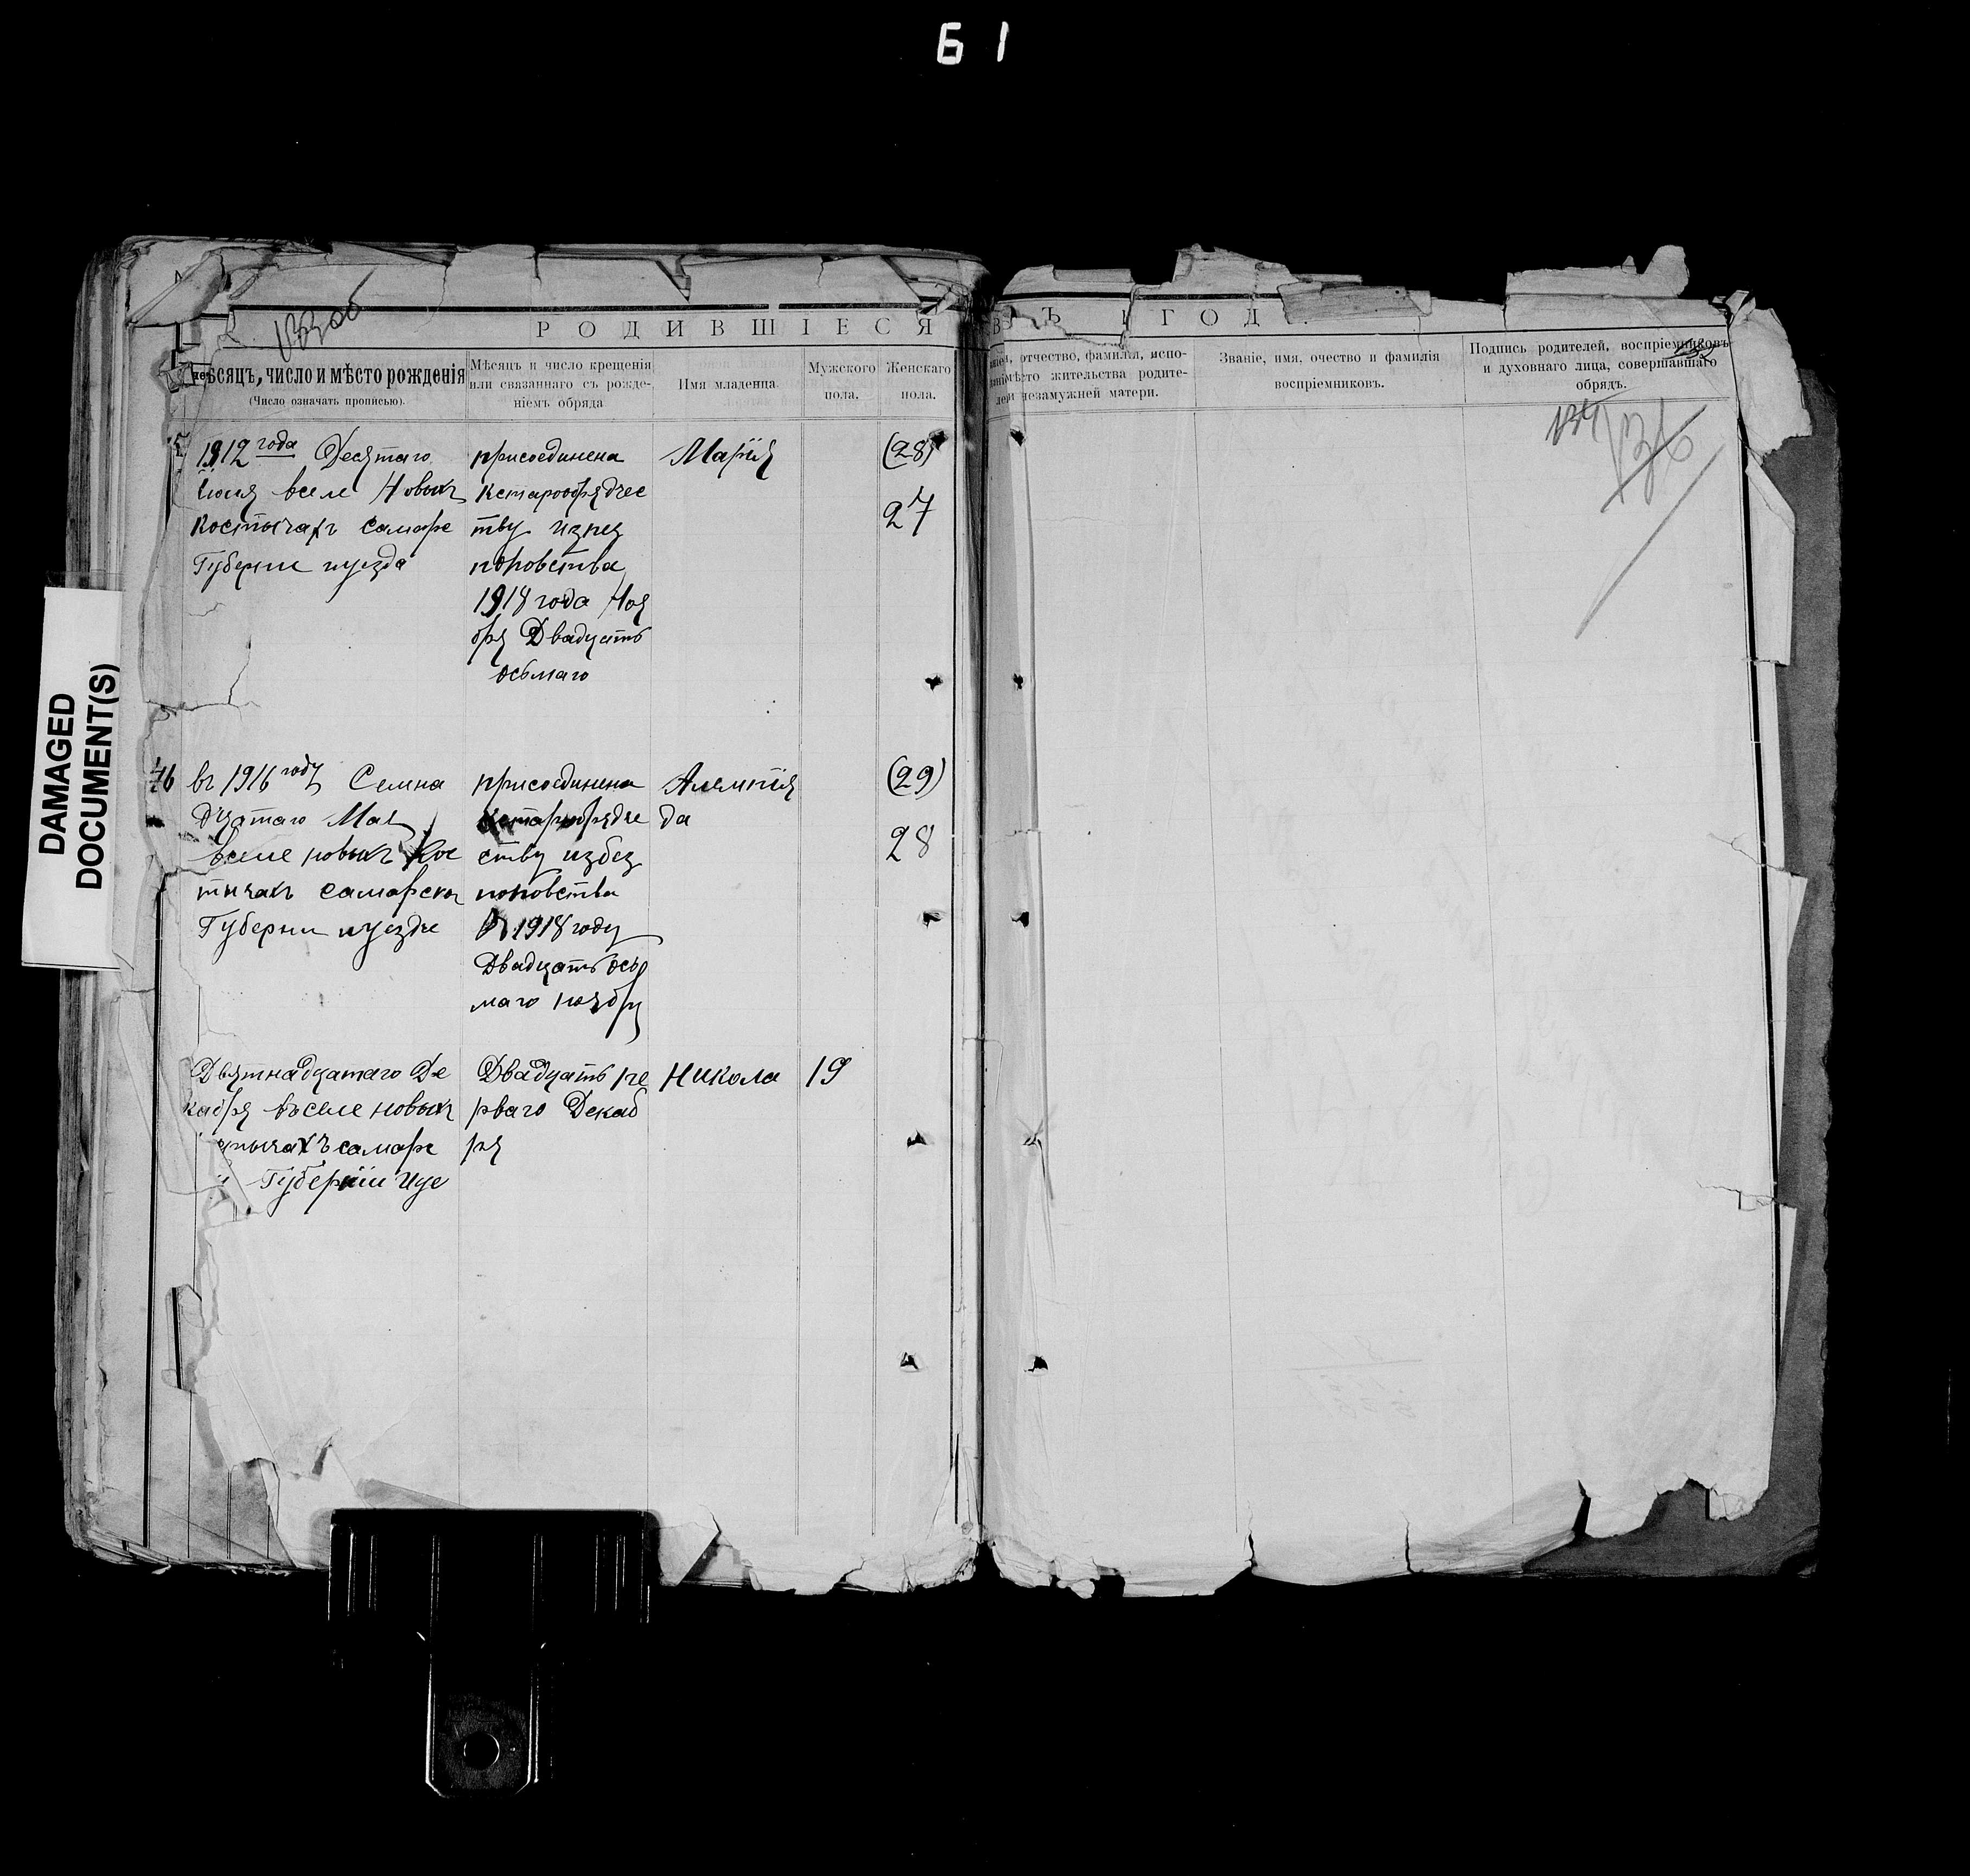 61
133об
РОДИВШІЕСЯ ВЪ 1 ГОД
мѣсяцъ, число и мѣсто рожденія
(Число означать прописью).
Мѣсяцъ и число крещенія
или связаннаго съ рожде-
ніемъ обряда
Имя младенца.
Мужского
пола.
Женскаго
пола.
отчество, фамилія, испо-
мѣсто жительства родите-
незамужней матери.
Званіе, имя, очество и фамилія
воспріемниковъ.
Подпись родителей, воспріемниковъ
и духовнаго лица, совершавшаго
обрядъ.
134
136
1912 года Десятаго
Іюля вселе Новыхъ
Костычахъ самарс
Губернии иуезда
присоединена
кстарообрядчес
тву избез
поповства
1918 года Ноя
бря Двадцать
осьмаго
Марія
(28)
27
46
въ 1916 году Семна
дцатаго Мая
вселе новыхъ Кос
тычахъ самарской
Губернии иуезде
присоединена
кстарообрядче
ству избез
поповства
в 1918 году
Двадцать ось
маго ноября
да
(29)
28
Девятнадцатаго Де
кабря вселе новыхъ
тычахъ самарс
Губерніи иуе
Двадцать пе
рваго Декаб
ря
Никола
19
DAMAGED
DOCUMENT(S)